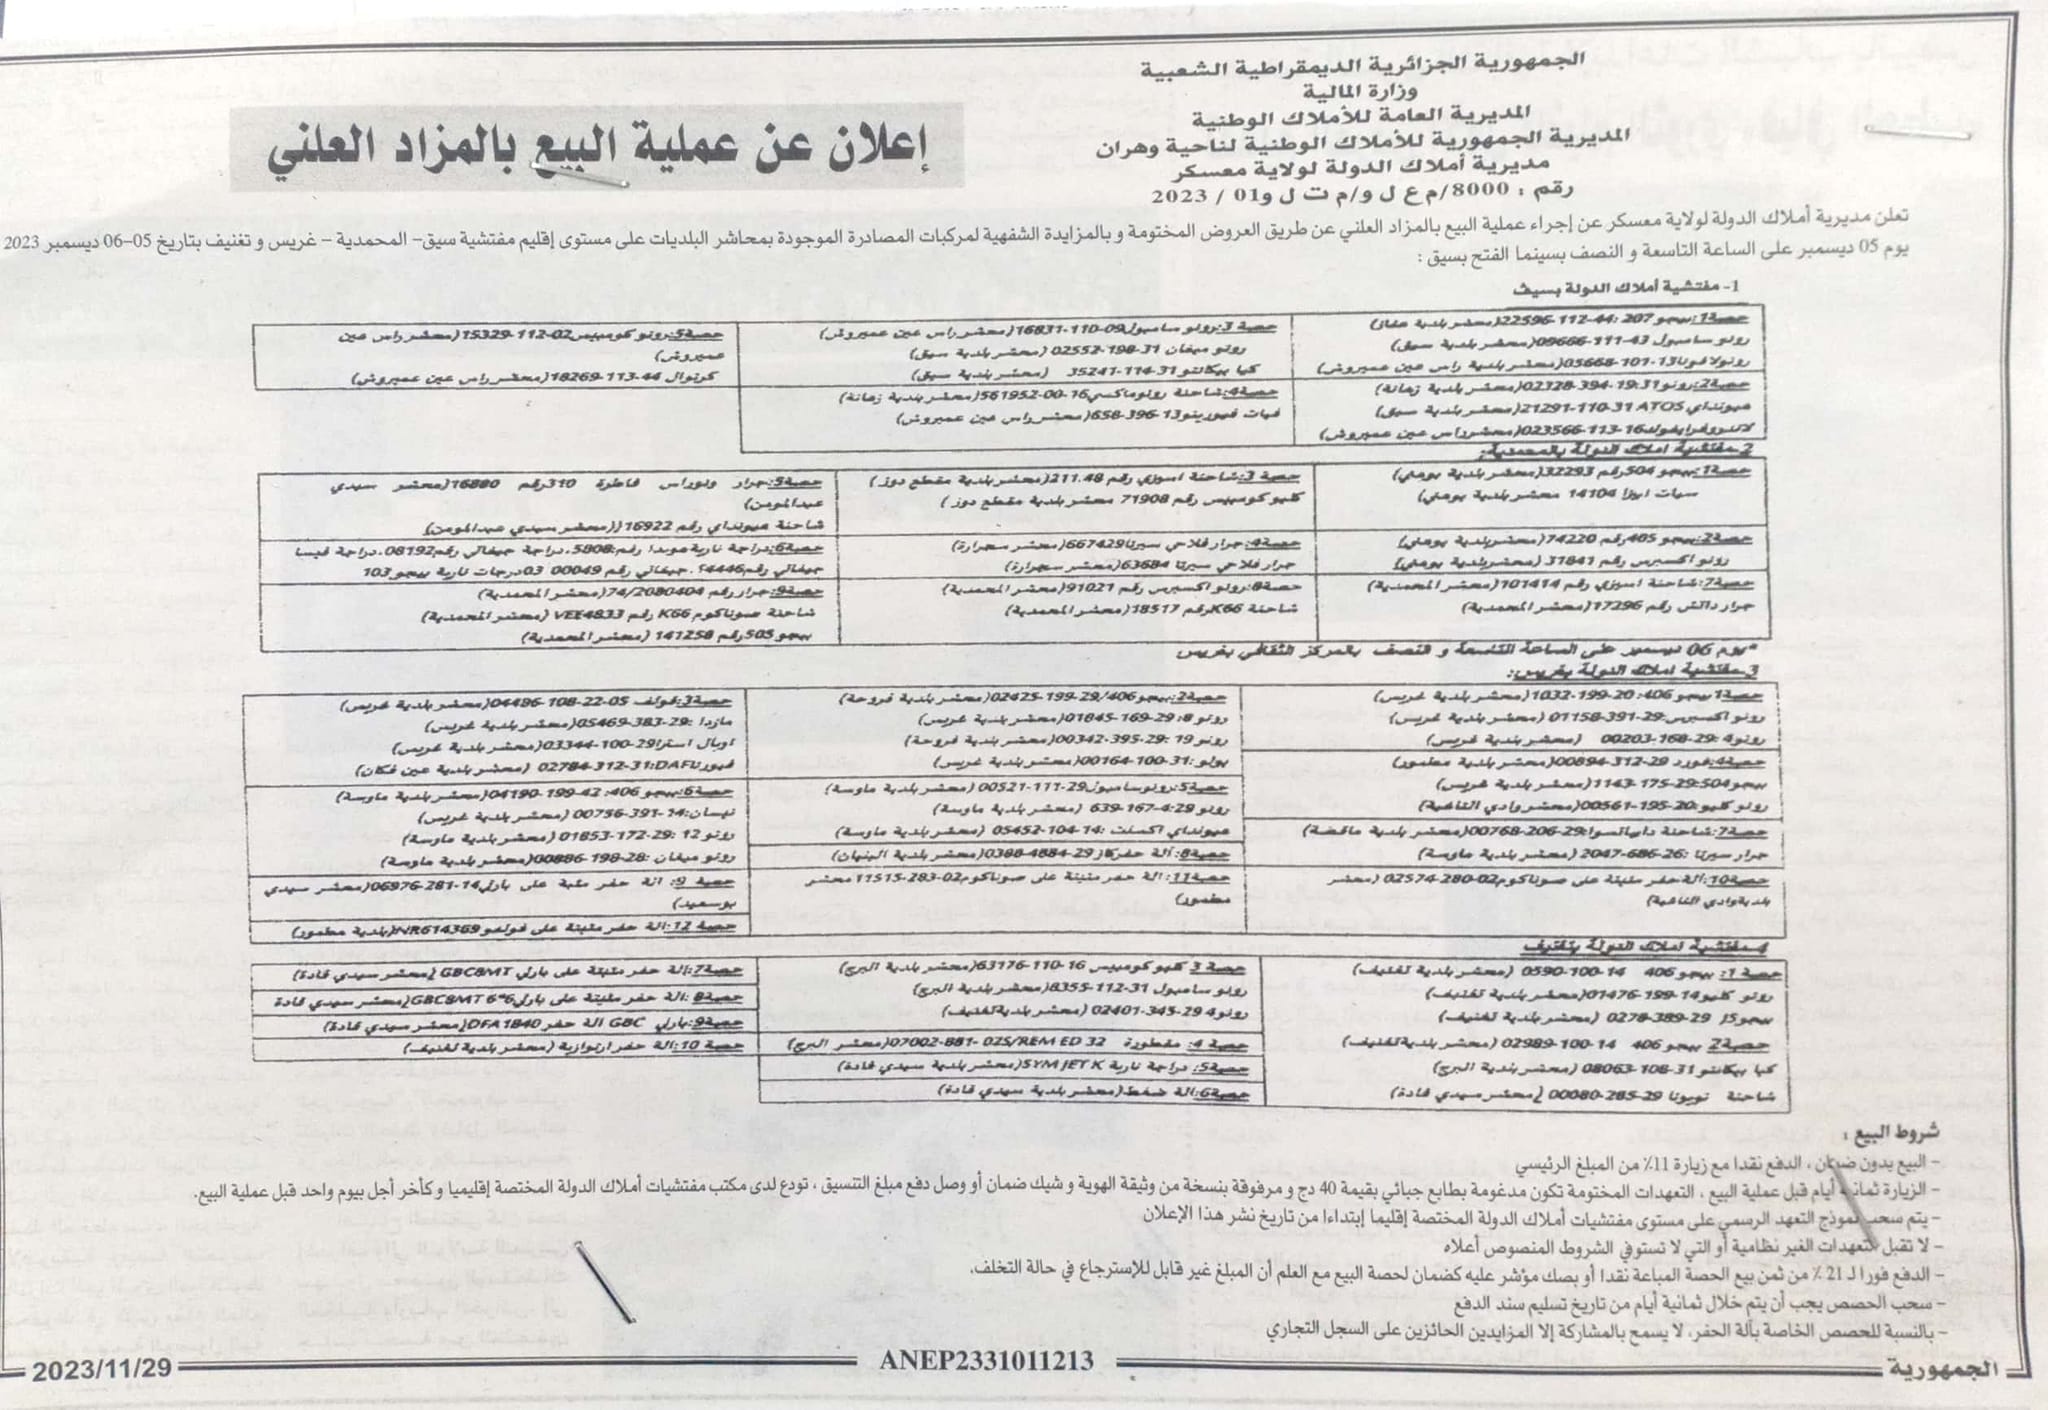 الجمهورية الجزائرية الديمقراطية الشعبية
وزارة المالية
المديرية العامة للأملاك الوطنية
المديرية الجمهورية للأملاك الوطنية لناحية وهران
مديرية أملاك الدولة لولاية معسكر
رقم : 8000/م ع ل و/م ت ل و01 / 2023
إعلان عن عملية البيع بالمزاد العلني
تعلن مديرية أملاك الدولة لولاية معسكر عن إجراء عملية البيع بالمزاد العلني عن طريق العروض المختومة و بالمزايدة الشفهية لمركبات المصادرة الموجودة بمحاشر البلديات على مستوى إقليم مفتشية سيق– المحمدية – غريس و تغنيف بتاريخ 05–06 ديسمبر 2023
يوم 05 ديسمبر على الساعة التاسعة و النصف بسينما الفتح بسيق :
1- مفتشية أملاك الدولة بسيق
حصة1:بيجو 207 :44-112-22596(محشر بلدية عقاز)
رونو سامبول 43-111-09666(محشر بلدية سيق)
رونولاقونا13-101-05668(محشر بلدية راس عين عميروش)
حصة2:رونو19:31-394-02328(محشر بلدية زهانة)
هيونداي ATOS 31-110-21291(محشر بلدية سيق)
16-113-023566(محشر راس عين عميروش)
حصة 3:رونو سامبول09-110-16831(محشر راس عين عميروش)
رونو ميغان 31-198-02552 (محشر بلدية سيق)
كيا بيكانتو 31-114-35241 (محشر بلدية سيق)
حصة4:شاحنة رونوماكسي16-00-561952(محشر بلدية زهانة)
فيات فيورينو13-396-658(محشر راس عين عميروش)
حصة5:رونو كومبيس02-112-15329(محشر راس عين
عميروش)
44-113-18269(محشر راس عين عميروش)
2-مفتشية املاك الدولة بالمحمدية:
حصة1:بيجو 504رقم 32293(محشر بلدية بوهني)
سيات ابيزا 14104 محشر بلدية بوهني)
حصة2:بيجو 405رقم 74220(محشر بلدية بوهني)
رونو اكسبرس رقم 31841 (محشر بلدية بوهني)
حصة7:شاحنة اسيزي رقم 101414(محشر المحمدية)
جرار داتش رقم 17296(محشر المحمدية)
حصة 3:شاحنة اسيزي رقم 211.48(محشر بلدية مقطع دوز )
كليو كومبيس رقم 71908 محشر بلدية مقطع دوز )
حصة4:جرار فلاحي سيرتا667429(محشر سجرارة)
جرار فلاحي سيرتا 63684 (محشر سجرارة)
حصة8:رونو اكسبرس رقم 91021(محشر المحمدية)
شاحنة K66رقم 18517 (محشر المحمدية)
310رقم 16880(محشر سيدي
عبدالمومن)
شاحنة هيونداي رقم 16922((محشر سيدي عبدالمومن)
حصة6:دراجة نارية هوندا رقم:5808.دراجة جيفالي رقم08192.دراجة
جيفالي رقم4446؟.جيفالي رقم 00049 03درجات نارية بيجو103
حصة9:جرار رقم 74/2080404(محشر المحمدية)
شاحنة صوناكوم K66 رقم VEE4833 (محشر المحمدية)
بيجو 505رقم 141258 (محشر المحمدية)
*يوم 06 ديسمبر على الساعة التاسعة و النصف بالمركز الثقافي بغريس
3-مفتشية املاك الدولة بغريس:
حصة1بيجو 406: 20-199-1032(محشر بلدية غريس)
رونو اكسبرس:29-391-01158 (محشر بلدية غريس)
رونو4 :29-168-00203 (محشر بلدية غريس)
حصة4:فورد 29-312-00894(محشر بلدية مطمور)
بيجو504:29-175-1143(محشر بلدية غريس)
رونو كليو:20-195-00561(محشر وادي التاغية)
29-206-00768(محشر بلدية ماقضة)
جرار سيرتا :26-686-2047 (محشر بلدية ماوسة)
حصة10:آلة حفر مثبتة على صوناكوم02-280-02574 (محشر
بلدية وادي التاغية)
حصة2:بيجو406/29-199-02425(محشر بلدية فروحة)
رونو 8: 29-169-01845(محشر بلدية غريس)
رونو 19 :29-395-00342(محشر بلدية فروحة)
بولو :31-100-00164(محشر بلدية غريس)
حصة5:رونوسامبول29-111-00521(محشر بلدية ماوسة)
رونو 4:29-167-639 (محشر بلدية ماوسة)
هيونداي اكسنت :14-104-05452 (محشر بلدية ماوسة)
29-4884-0388(محشر بلدية البنيان)
حصة11: الة حفر مثبتة على صوناكوم02-283-11515محشر
مطمور)
حصة3:قولف 05-22-108-04496(محشر بلدية غريس)
مازدا :29-383-05469(محشر بلدية غريس)
اوبال استرا29-100-03344(محشر بلدية غريس)
DAF:31-312-02784 (محشر بلدية عين فكان)
حصة6:بيجو 406: 42-199-04190(محشر بلدية ماوسة)
نيسان:14-391-00756 (محشر بلدية غريس)
رونو 12 :29-172-01853 (محشر بلدية ماوسة)
رونو ميغان :28-198-00886(محشر بلدية ماوسة)
حصة 9: الة حفر مثبة على بارلي14-281-06976(محشر سيدي
بوسعيد)
حصة 12:الة حفر مثبتة على فولفوNR614369(بلدية مطمور)
4-مفتشية املاك الدولة بتغنيف
حصة 1: بيجو 406 14-100-0590 (محشر بلدية تغنيف)
رونو كليو14-199-01476(محشر بلدية تغنيف)
بيجوJ5 29-389-0278 (محشر بلدية تغنيف)
حصة2 بيجو 406 14-100-02989 (محشر بلدية تغنيف)
كيا بيكانتو 31-108-08063 (محشر بلدية البرج)
شاحنة تويوتا 29-285-00080 (محشر سيدي قادة)
حصة 3 كليو كومبيس 16-110-63176(محشر بلدية البرج)
رونو سامبول 31-112-8355(محشر بلدية البرج)
رونو4 29-345-02401 (محشر بلدية تغنيف)
حصة 4: مقطورة 32 02S/REM ED -881-07002(محشر البرج)
حصة5: دراجة نارية SYM JET K(محشر بلدية سيدي قادة)
حصة6:الة ضغط(محشر بلدية سيدي قادة)
حصة7:الة حفر مثبتة على بارلي GBC8MT (محشر سيدي قادة)
حصة8: الة حفر مثبتة على بارلي6*6 GBC8MT(محشر سيدي قادة
حصة9:بارلي GBC الة حفر DFA1840(محشر سيدي قادة)
حصة 10:الة حفر ارتوازية (محشر بلدية تغنيف)
شروط البيع :
– البيع بدون ضمان ، الدفع نقدا مع زيارة 11٪ من المبلغ الرئيسي
– الزيارة ثمانية أيام قبل عملية البيع ، التعهدات المختومة تكون مدغومة بطابع جبائي بقيمة 40 دج و مرفوقة بنسخة من وثيقة الهوية و شيك ضمان أو وصل دفع مبلغ التنسيق ، تودع لدى مكتب مفتشيات أملاك الدولة المختصة إقليميا و كأخر أجل بيوم واحد قبل عملية البيع.
– يتم سحب نموذج التعهد الرسمي على مستوى مفتشيات أملاك الدولة المختصة إقليما إبتداءا من تاريخ نشر هذا الإعلان
– لا تقبل التعهدات الغير نظامية أو التي لا تستوفي الشروط المنصوص أعلاه
– الدفع فورا لـ 21 ٪ من ثمن بيع الحصة المباعة نقدا أو بصك مؤشر عليه كضمان لحصة البيع مع العلم أن المبلغ غير قابل للإسترجاع في حالة التخلف.
– سحب الحصص يجب أن يتم خلال ثمانية أيام من تاريخ تسليم سند الدفع
– بالنسبة للحصص الخاصة بآلة الحفر، لا يسمح بالمشاركة إلا المزايدين الحائزين على السجل التجاري
الجمهورية
ANEP2331011213
2023/11/29